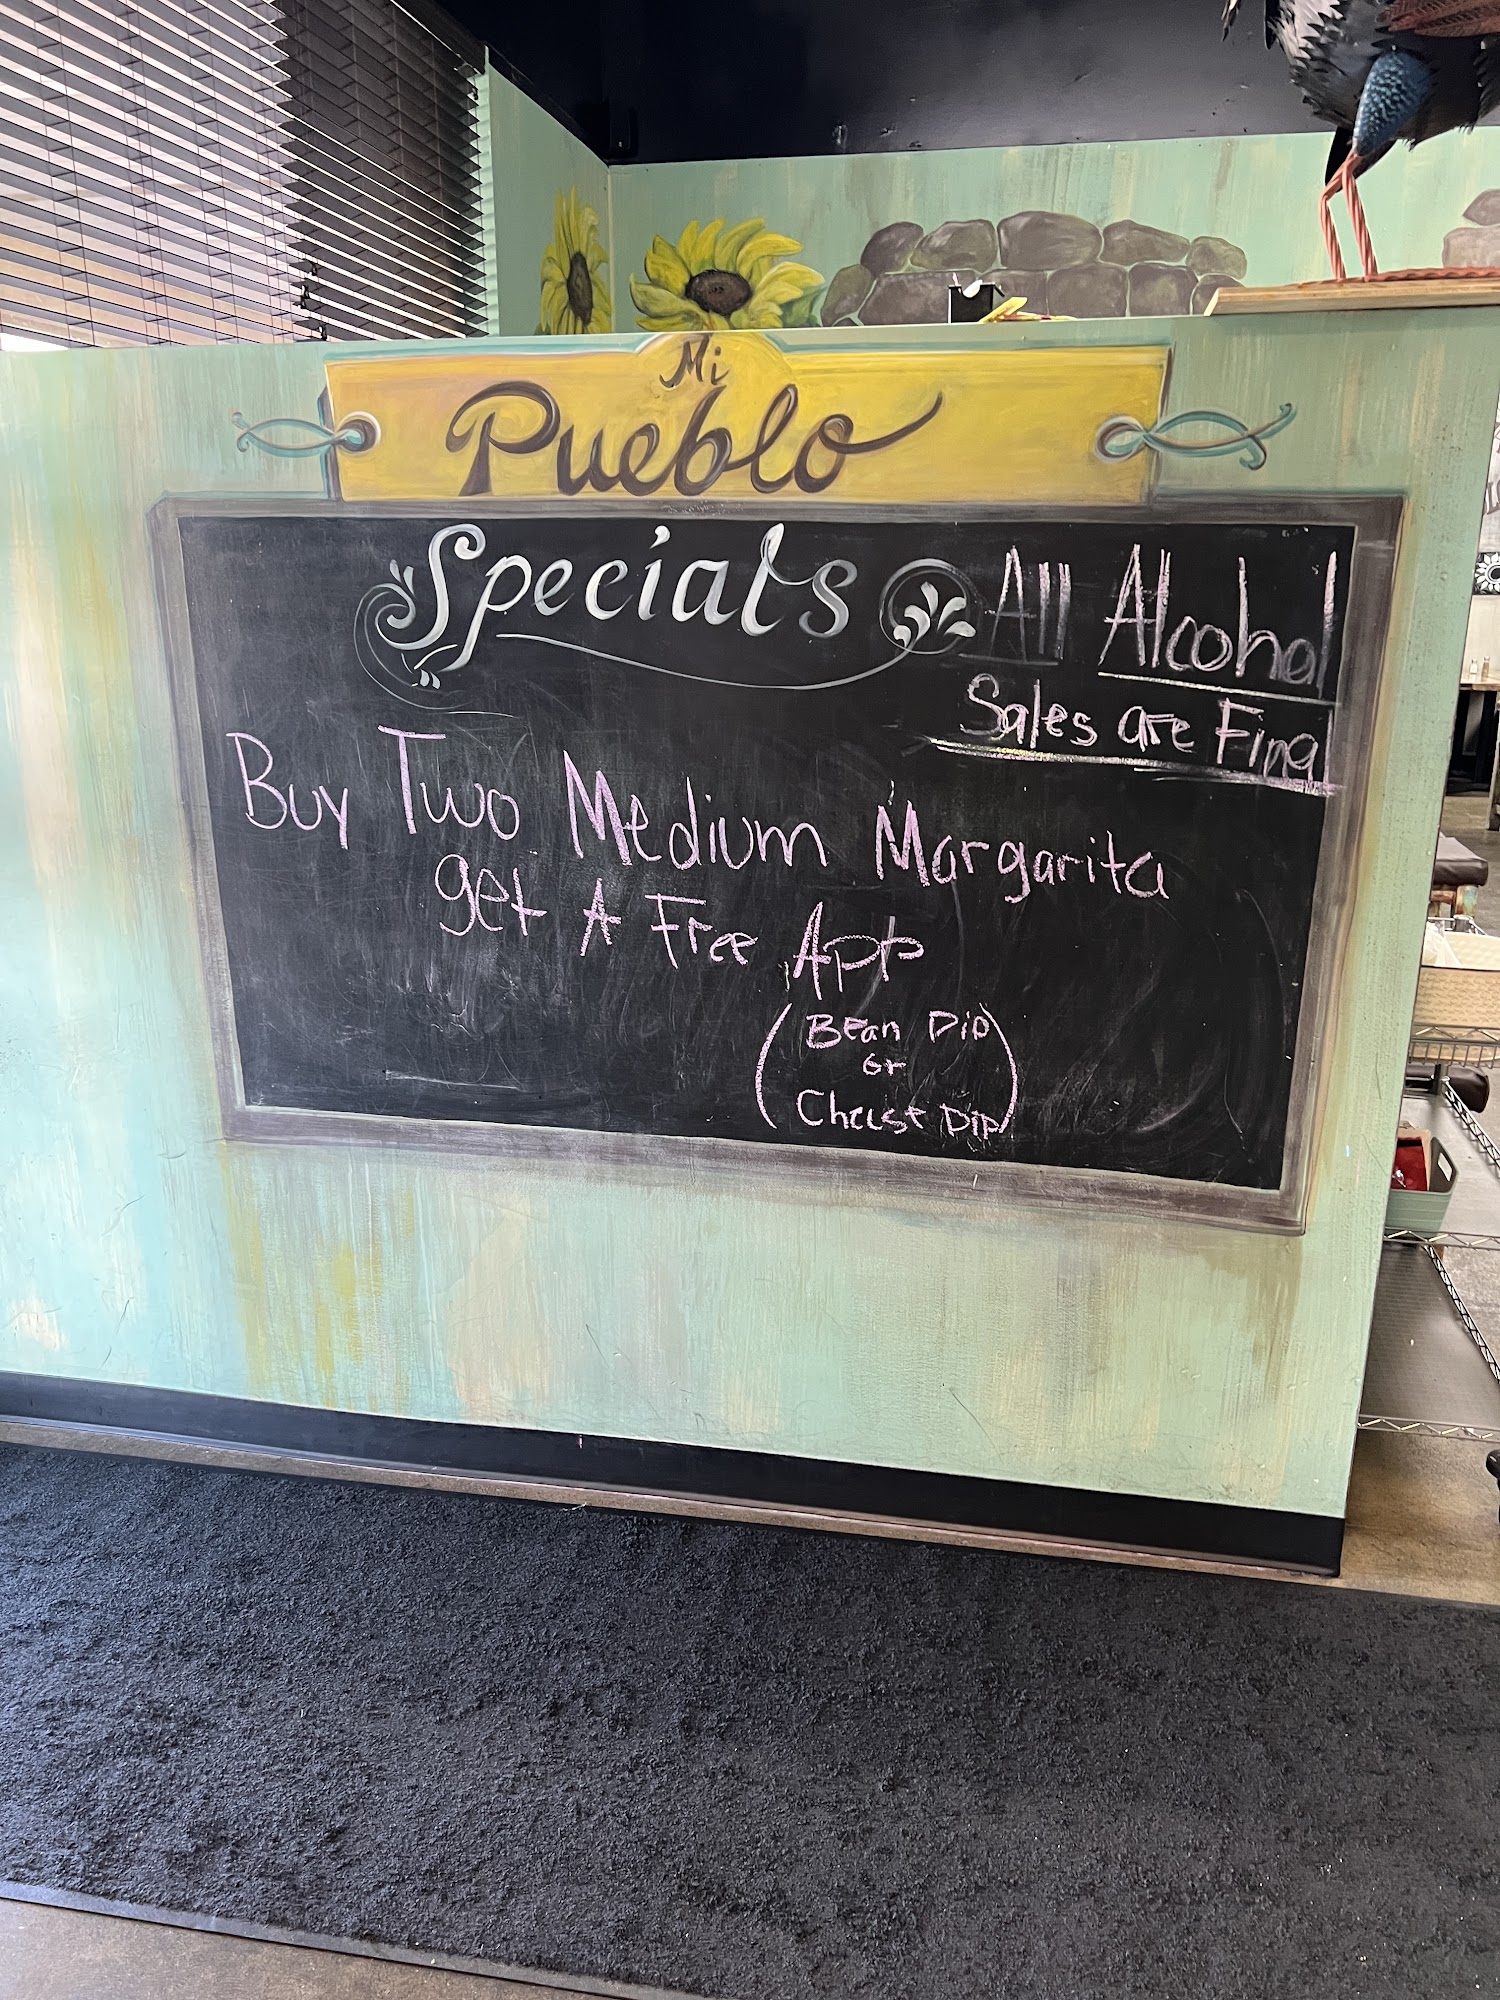 Mi
Pueblo
Specials
All Alcohol
Sales are Final
Buy Two Medium Margarita
get A Free App
(Bean Dip
or
Cheese Dip)